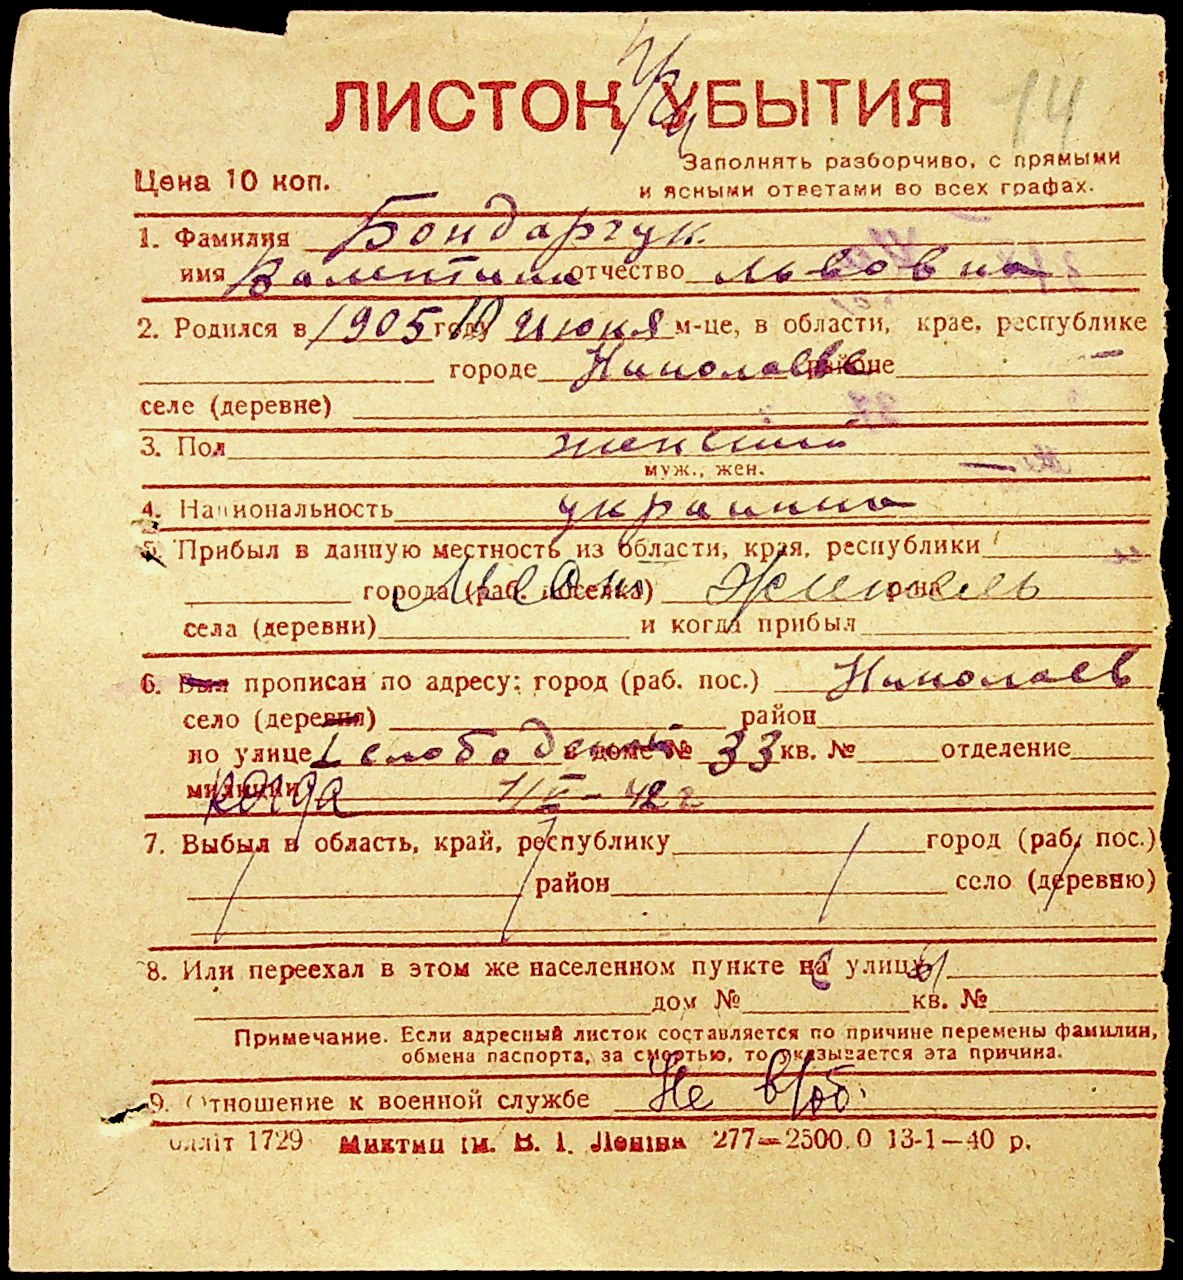 14
ЛИСТОК УБЫТИЯ
Цена 10 коп.
Заполнять разборчиво, с прямыми
и ясными ответами во всех графах.
1. Фамилия Бондарчук.
имя Валентина отчество Львовна
2. Родился в 1905 году 10 Июня м-це, в области, крае, республике
городе Николаеве районе
селе (деревне)
3. Пол женский
муж., жен.
4. Национальность украинка
5. Прибыл в данную местность из области, края, республики
города (раб. поселка) Мест житель р-на
села (деревни) и когда прибыл
6. Был прописан по адресу: город (раб. пос.) Николаев
село (деревня) район
по улице 1 слободской в доме № 33 кв. № отделение
милиции когда 1/V-42 г
7. Выбыл в область, край, республику город (раб. пос.)
район село (деревню)
8. Или переехал в этом же населенном пункте на улицу
дом № кв. №
Примечание. Если адресный листок составляется по причине перемены фамилии,
обмена паспорта, за смертью, то указывается эта причина.
9. Отношение к военной службе Не в/об.
Обліт 1729 Миктип ім. В. І. Леніна 277—2500.0 13-1—40 р.